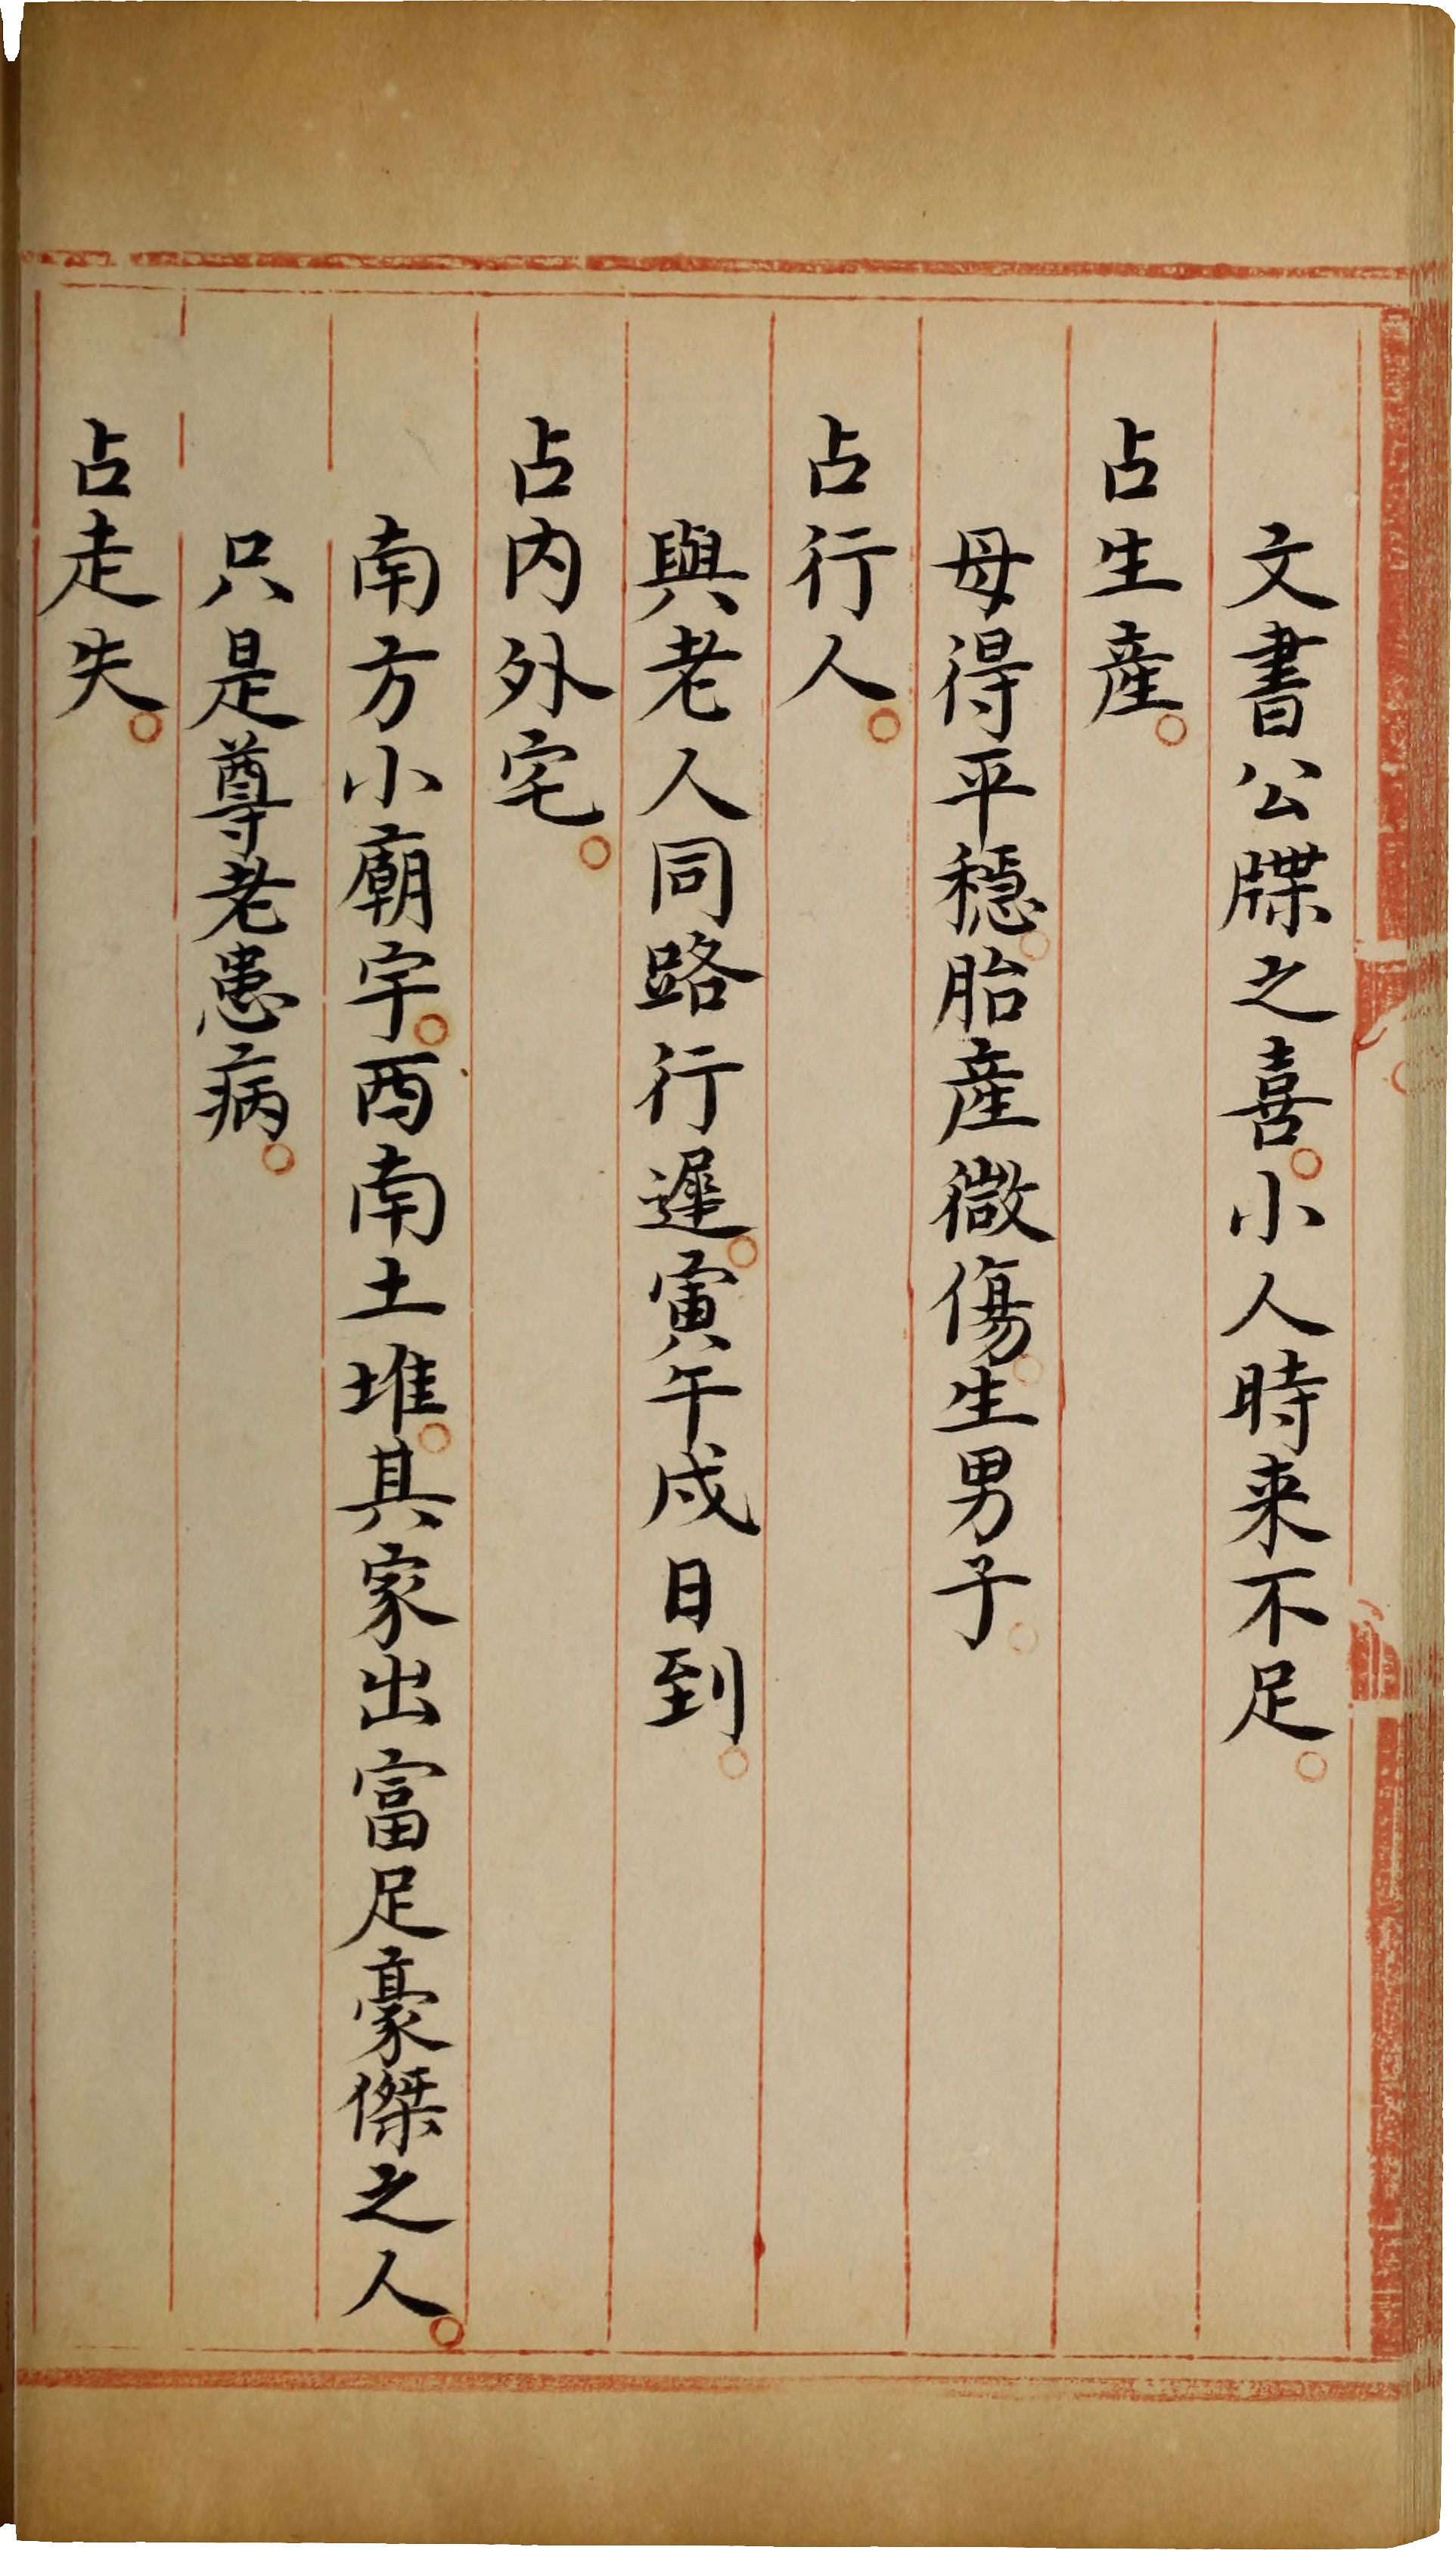 文書公牒之喜。小人時来不足。
占生產。
母得平穩。胎產微傷。生男子。
占行人。
與老人同路行遲。寅午戌日到。
占内外宅。
南方小廟宇。西南土堆。其家出富足豪傑之人。
只是尊老患病。
占走失。